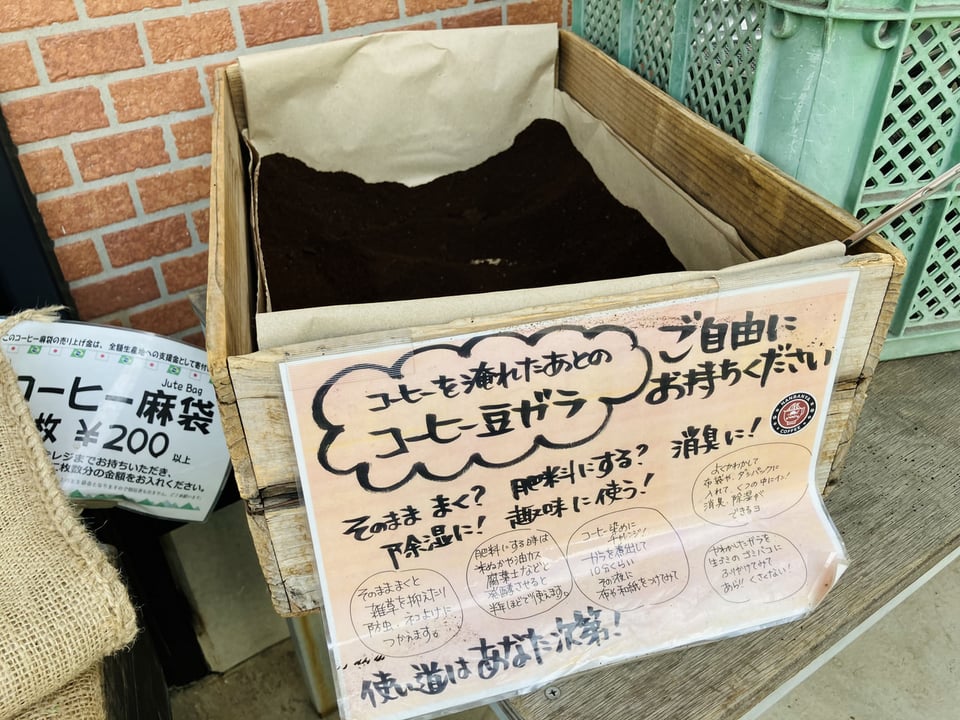 このコーヒー麻袋の売り上げ金は、全額生産地への支援金として寄付
Jute Bag
コーヒー麻袋
枚 ¥200 以上
レジまでお持ちいただき、
枚数分の金額をお入れください。
コーヒーを淹れたあとの
コーヒー豆ガラ
ご自由に
お持ちください
MANDANYA
COFFEE
そのまま まく? 肥料にする? 消臭に!
除湿に! 趣味に使う!
そのまままくと
雑草を抑えたり
防虫、ネコよけに
つかえます。
肥料にする時は
米ぬかや油カス
腐葉土などと
発酵させると
半年ほどで使えます。
コーヒー染めに
チャレンジ!
ガラを煮出して
10分くらい
その液に
布や和紙をつけてみて
よくかわかして
布袋や、ダシパックに
入れて、くつの中にイン!
消臭、除湿が
できるヨ
かわかしたガラを
生ゴミのゴミバコに
ふりかけてみて
あら!! くさくない!
使い道はあなた次第!